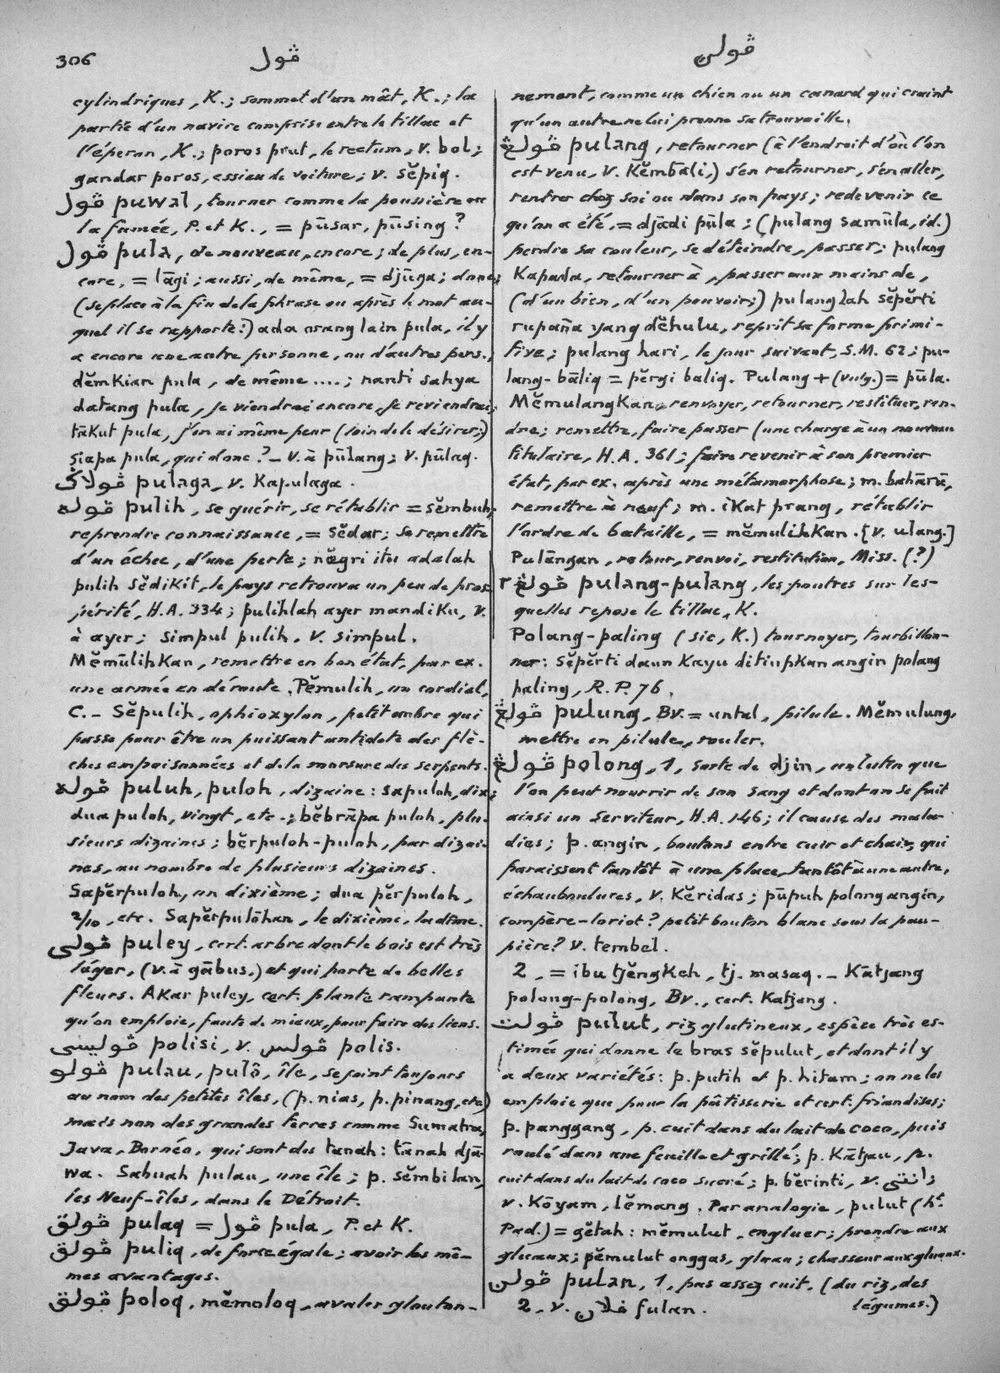 306
ڤول
ڤولن
cylindriques, K.; sommet d'un mât, K.; la
partie d'un navire comprise entre le tillac et
l'éperon, K.; poros prut, le rectum, v. bol;
gandar poros, essieu de voiture; v. sĕpiq.
ڤول puwal, tourner comme la poussière ou
la fumée, P. et K., = pūsar, pūsing?
ڤول pula, de nouveau, encore; de plus, en-
core, = lāgi; aussi, de même, = djūga; donc;
(se place à la fin de la phrase ou après le mot au-
quel il se rapporte:) ada orang lain pula, il y
a encore une autre personne, ou d'autres pers.;
dĕmKian pula, de même ....; nanti sahya
datang pula, je viendrai encore, je reviendrai;
tākut pula, j'en ai même peur (loin de le désirer;)
siapa pula, qui donc? – v. à pūlang; v. pūlaq.
ڤولاݢ pulaga, v. Kapulaga.
ڤوله pulih, se guérir, se rétablir = sĕmbuh;
reprendre connaissance, = sĕdar; se remettre
d'un échec, d'une perte; nĕgri itu adalah
pulih sĕdiKit, le pays retrouva un peu de pros-
périté, H.A. 334; pulihlah ayer mandiKu, v.
à ayer; simpul pulih, v. simpul.
MĕmūlihKan, remettre en bon état, par ex.
une armée en déroute. Pĕmulih, un cordial,
C. – Sĕpulih, ophioxylon, petit arbre qui
passe pour être un puissant antidote des flè-
ches empoisonnées et de la morsure des serpents.
ڤوله puluh, puloh, dizaine: sapuloh, dix;
dua puloh, vingt, etc.; bĕbrāpa puloh, plu-
sieurs dizaines; bĕrpuloh-puloh, par dizai-
nes, au nombre de plusieurs dizaines.
Sapĕrpuloh, un dixième; dua pĕrpuloh,
2/10, etc. Sapĕrpulōhan, le dixième, la dîme.
ڤولي puley, cert. arbre dont le bois est très
léger, (v. à gābus,) et qui porte de belles
fleurs. AKar puley, cert. plante rampante
qu'on emploie, faute de mieux, pour faire des liens.
ڤوليسي polisi, v. ڤولس polis.
ڤولو pulau, pulō, île, se joint toujours
au nom des petites îles, (p. nias, p. pinang, etc)
mais non des grandes terres comme Sumatra,
Java, Bornéo, qui sont des tanah: tānah djā-
wa. Sabuah pulau, une île; p. sĕmbilan,
les Neuf-îles, dans le Détroit.
ڤولق pulaq = ڤول pula, P. et K.
ڤولق puliq, de force égale; avoir les mê-
mes avantages.
ڤولق poloq, mĕmoloq, avaler glouton-
nement, comme un chien ou un canard qui craint
qu'un autre ne lui prenne sa trouvaille.
ڤولڠ pulang, retourner (à l'endroit d'où l'on
est venu, v. Kĕmbali,) s'en retourner, s'en aller,
rentrer chez soi ou dans son pays; redevenir ce
qu'on a été, = djādi pūla; (pulang samūla, id.)
perdre sa couleur, se déteindre, passer; pulang
Kapada, retourner à, passer aux mains de,
(d'un bien, d'un pouvoir;) pulanglah sĕpĕrti
rupaña yang dĕhulu, reprit sa forme primi-
tive; pulang hari, le jour suivant, S.M. 62; pu-
lang-bāliq = pĕrgi baliq. Pulang + (vulg.) = pūla.
MĕmulangKan, renvoyer, retourner, restituer, ren-
dre; remettre, faire passer (une charge à un nouveau
titulaire, H.A. 361; faire revenir à son premier
état, par ex. après une métamorphose; m. bahāru,
remettre à neuf; m. iKat prang, rétablir
l'ordre de bataille, = mĕmulihKan. [v. ulang.]
Pulāngan, retour, renvoi, restitution, Miss. (?)
ڤولڠ٢ pulang-pulang, les poutres sur les-
quelles repose le tillac, K.
Polang-paling (sic, K.) tournoyer, tourbillon-
ner: sĕpĕrti daun Kayu ditiupKan angin polang
paling, R.P. 76.
ڤولڠ pulung, Bv. = untal, pilule. Mĕmulung,
mettre en pilule, rouler.
ڤولڠ polong, 1, sorte de djin, un lutin que
l'on peut nourrir de son sang et dont on se fait
ainsi un serviteur, H.A. 146; il cause des mala-
dies; p. angin, boutons entre cuir et chair, qui
paraissent tantôt à une place, tantôt à une autre,
échauboulures, v. Kĕridas; pūpuh polong angin,
compère-loriot? petit bouton blanc sous la pau-
pière? v. tembel.
2, = ibu tjĕngKeh, tj. masaq. – Kātjang
polong-polong, Bv., cert. Katjang.
ڤولت pulut, riz glutineux, espèce très es-
timée qui donne le bras sĕpulut, et dont il y
a deux variétés: p. putih et p. hitam; on ne les
emploie que pour la pâtisserie et cert. friandises;
p. panggang, p. cuit dans du lait de coco, puis
roulé dans une feuille et grillé; p. Kātjau, p.
cuit dans du lait de coco sucré; p. bĕrinti, v.
v. Kōyam, lĕmang. Par analogie, pulut (hᵗ.
Pad.) = gĕtah: mĕmulut, engluer; prendre aux
gluaux; pĕmulut onggas, gluau; chasseur aux gluaux.
ڤولن pulan, 1, pas assez cuit, (du riz, des
légumes.)
2, v. فلان fulan.